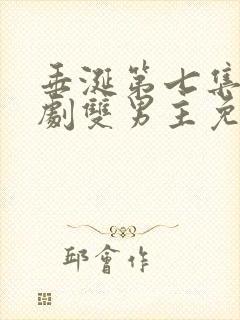 垂涎第七集
劇雙男主免
邱會作